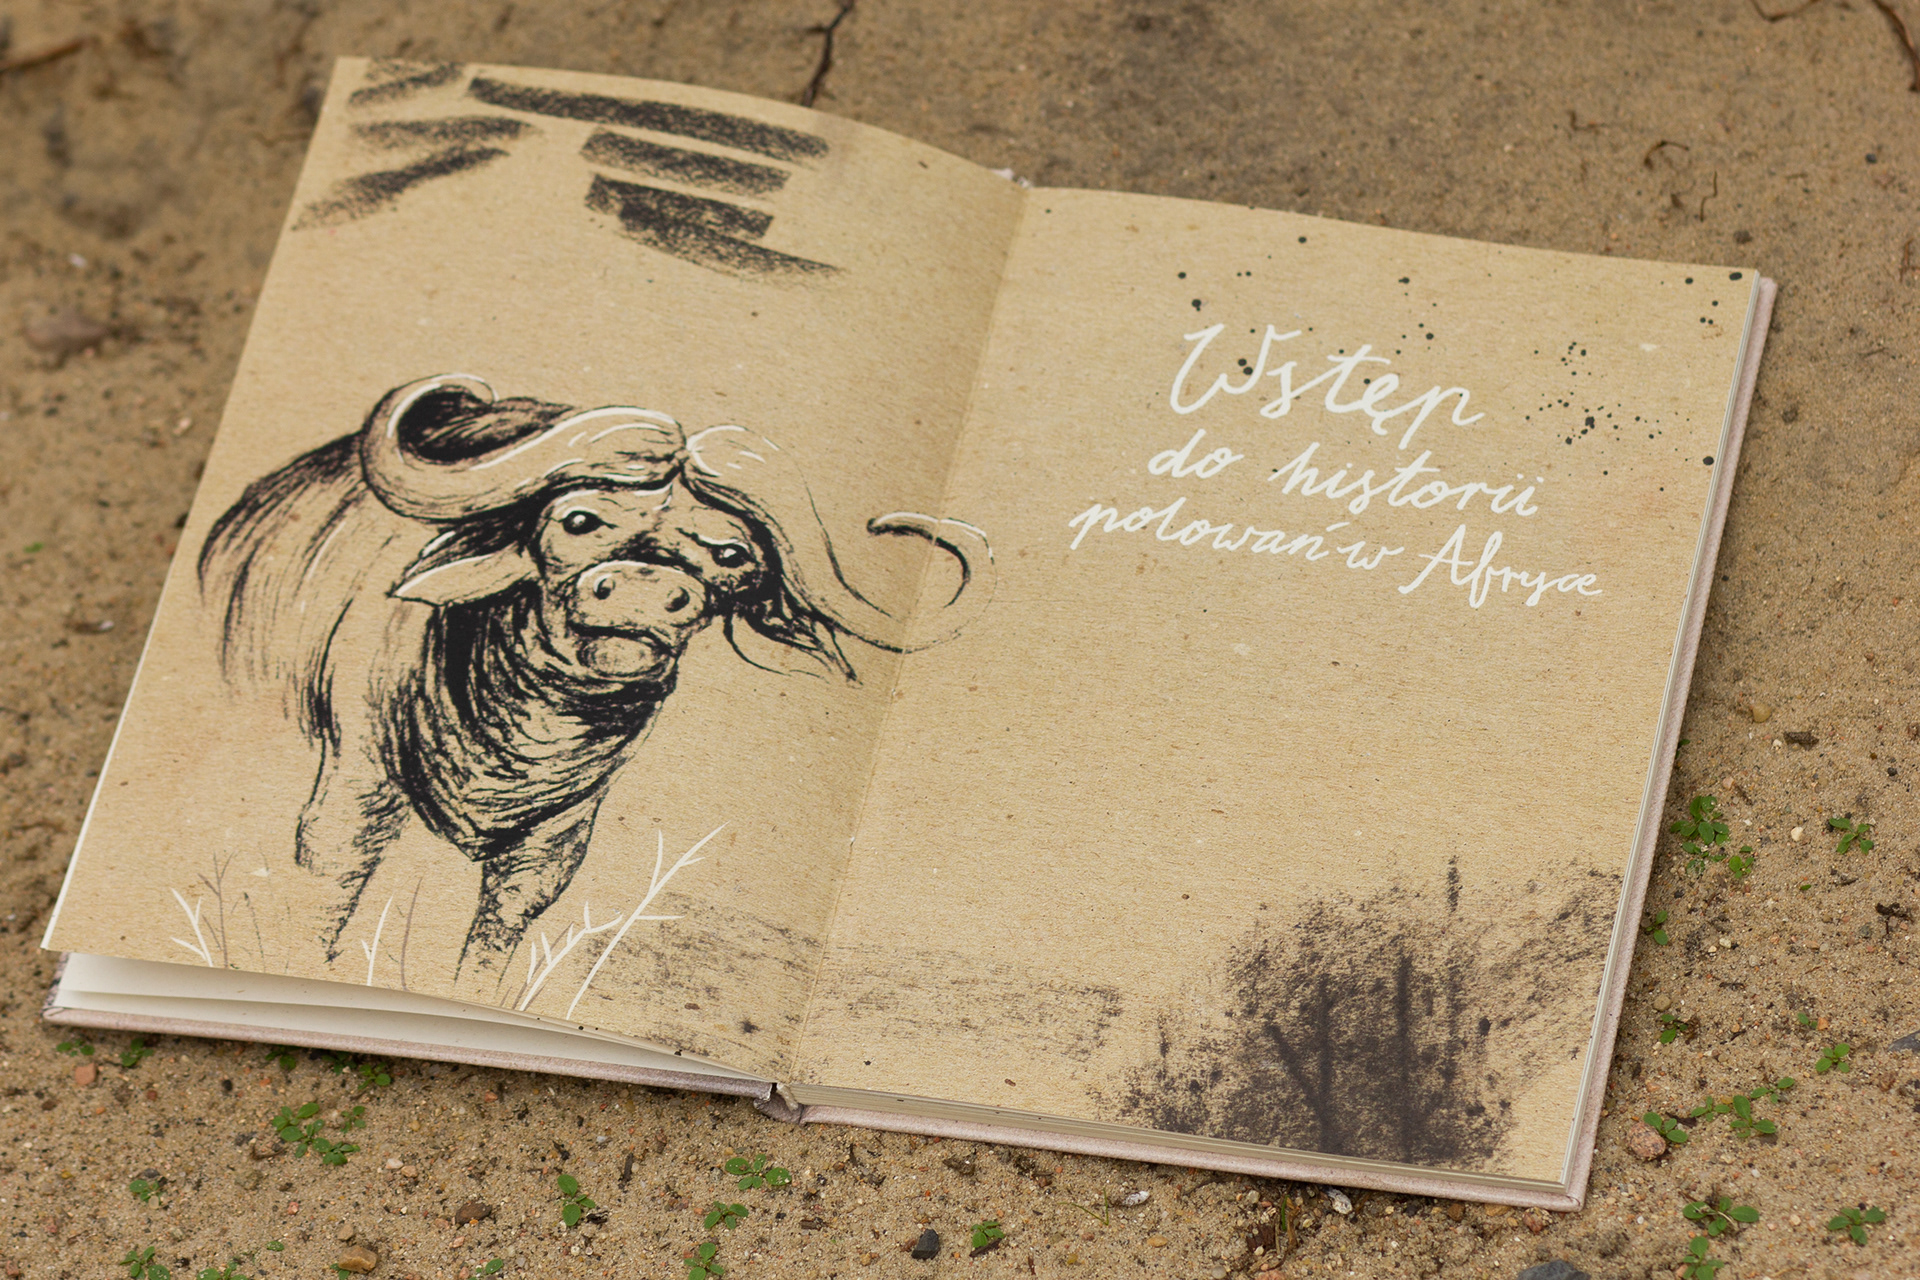 Wstęp
do historii
polowań w Afryce